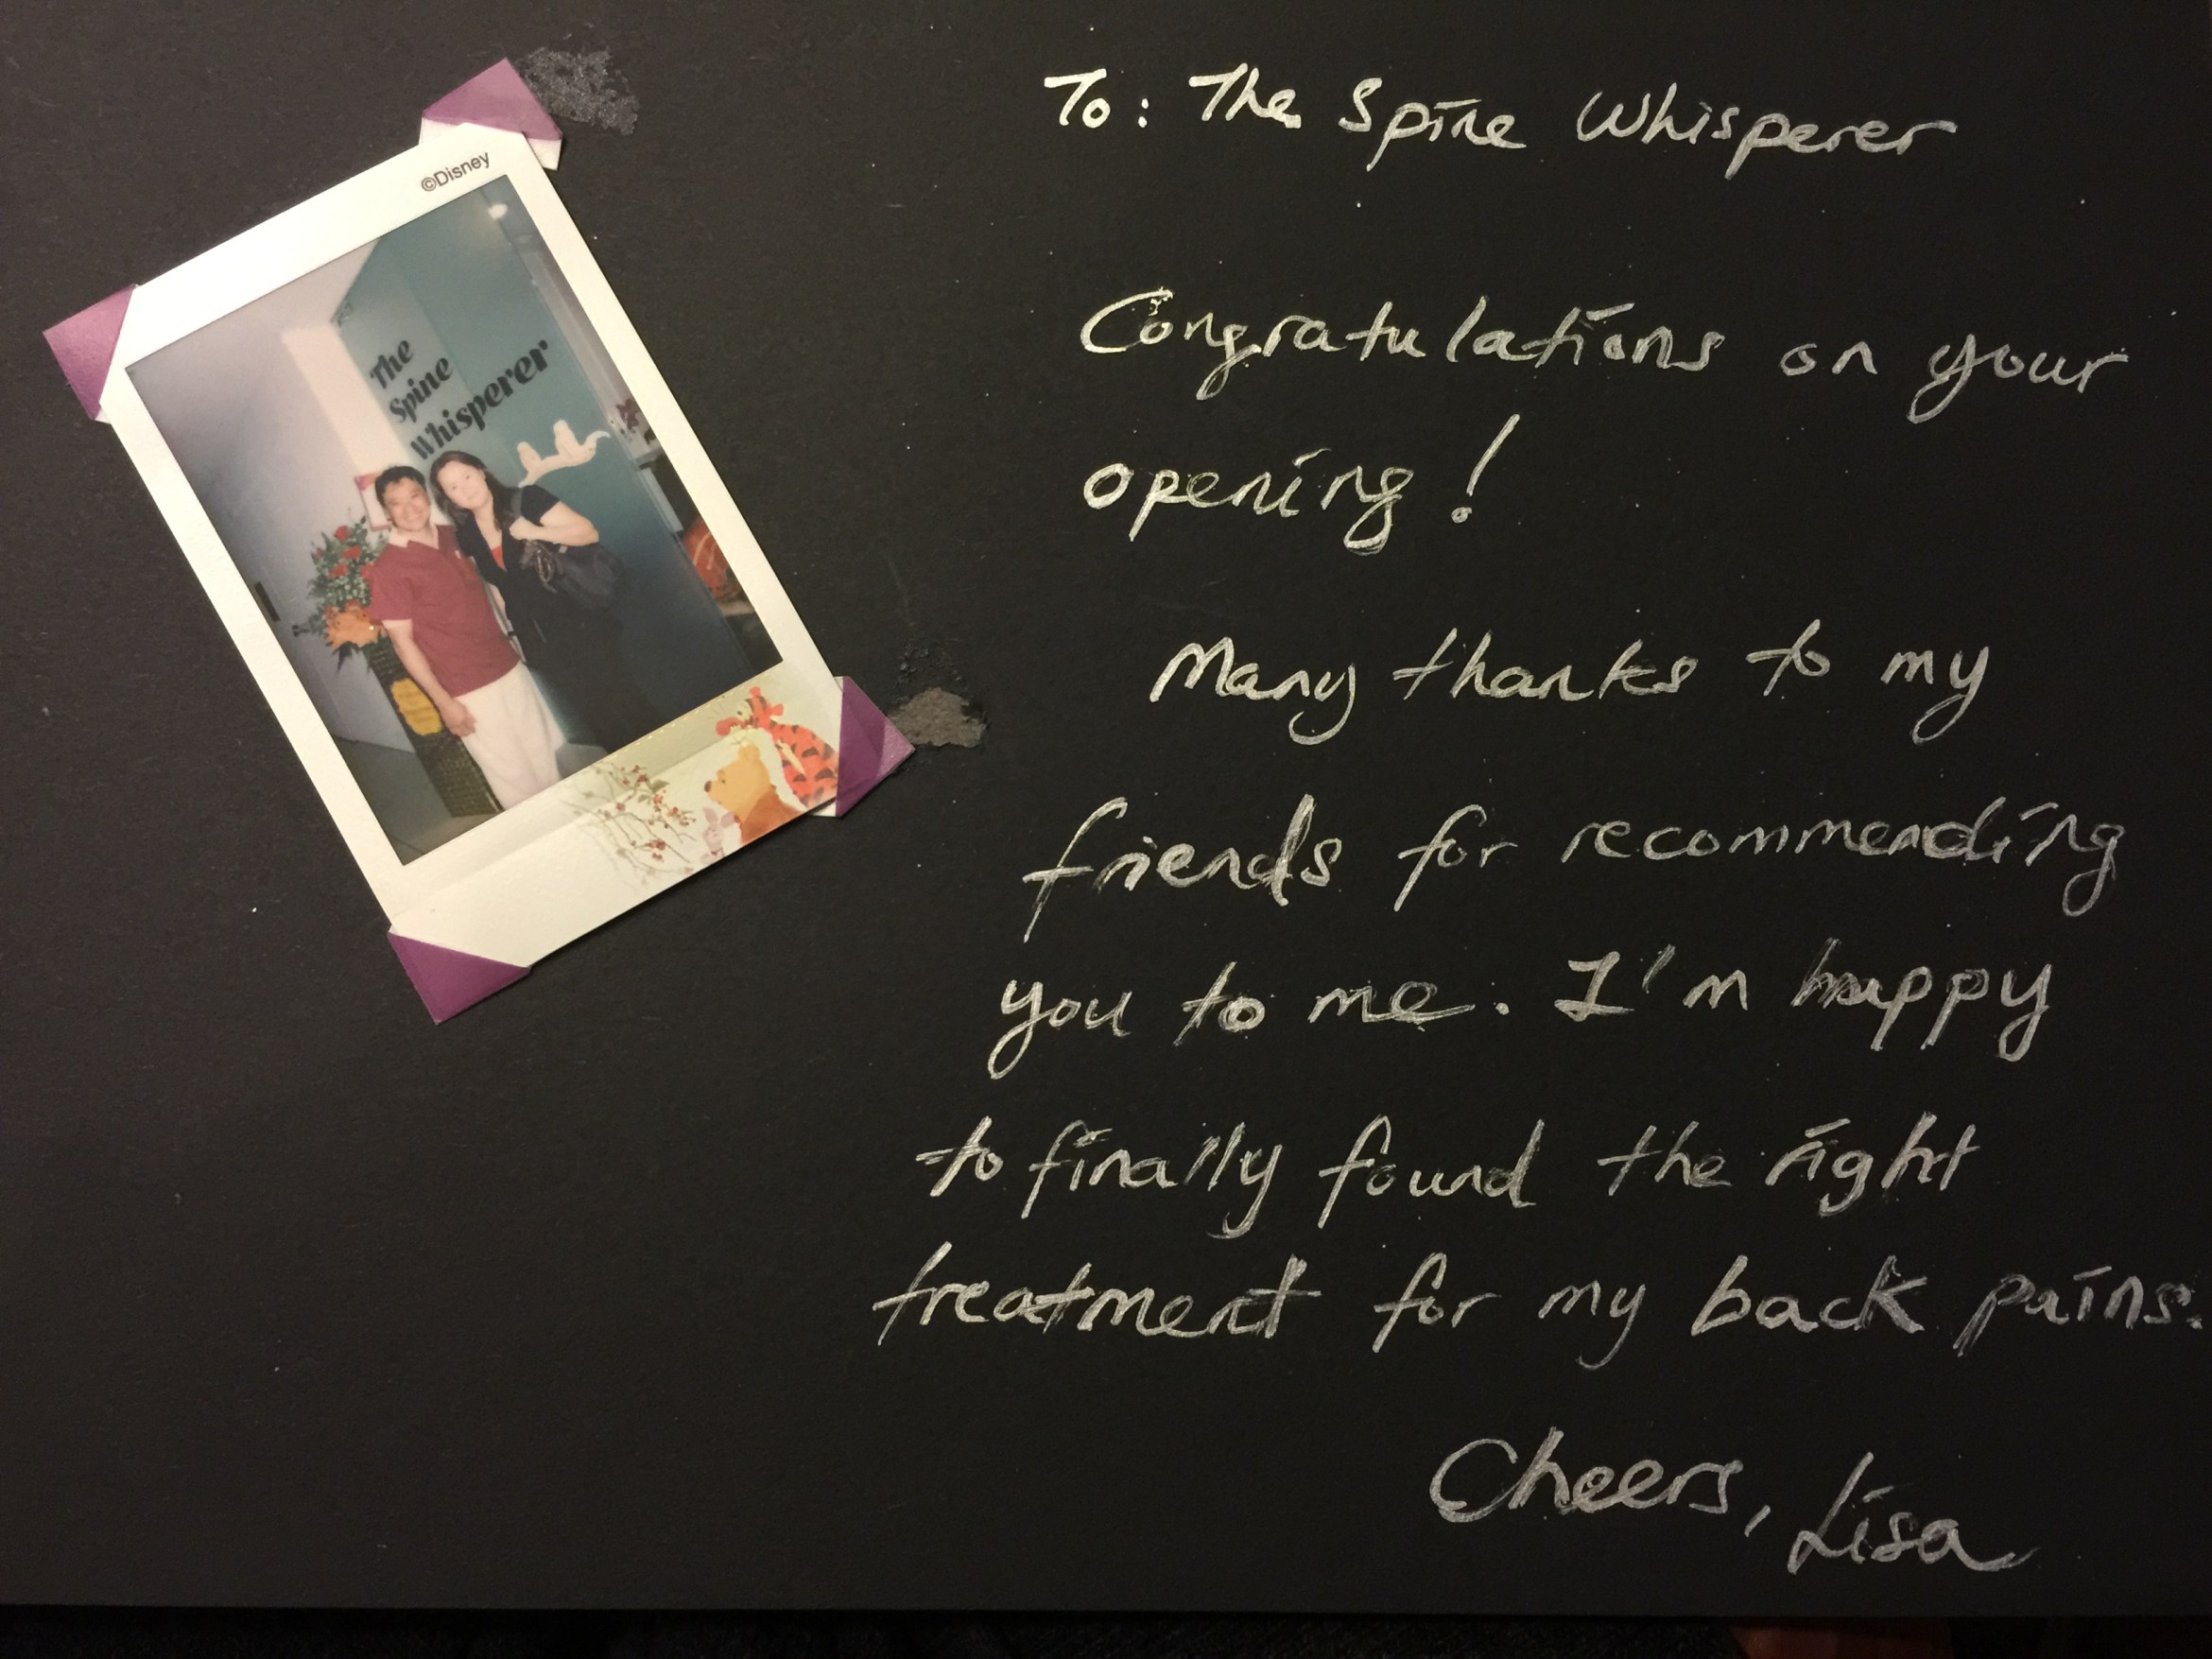 ©Disney
The
Spine
Whisperer
To: The Spine Whisperer
Congratulations on your
opening!
Many thanks to my
friends for recommending
you to me. I'm happy
to finally found the right
treatment for my back pains.
Cheers, Lisa